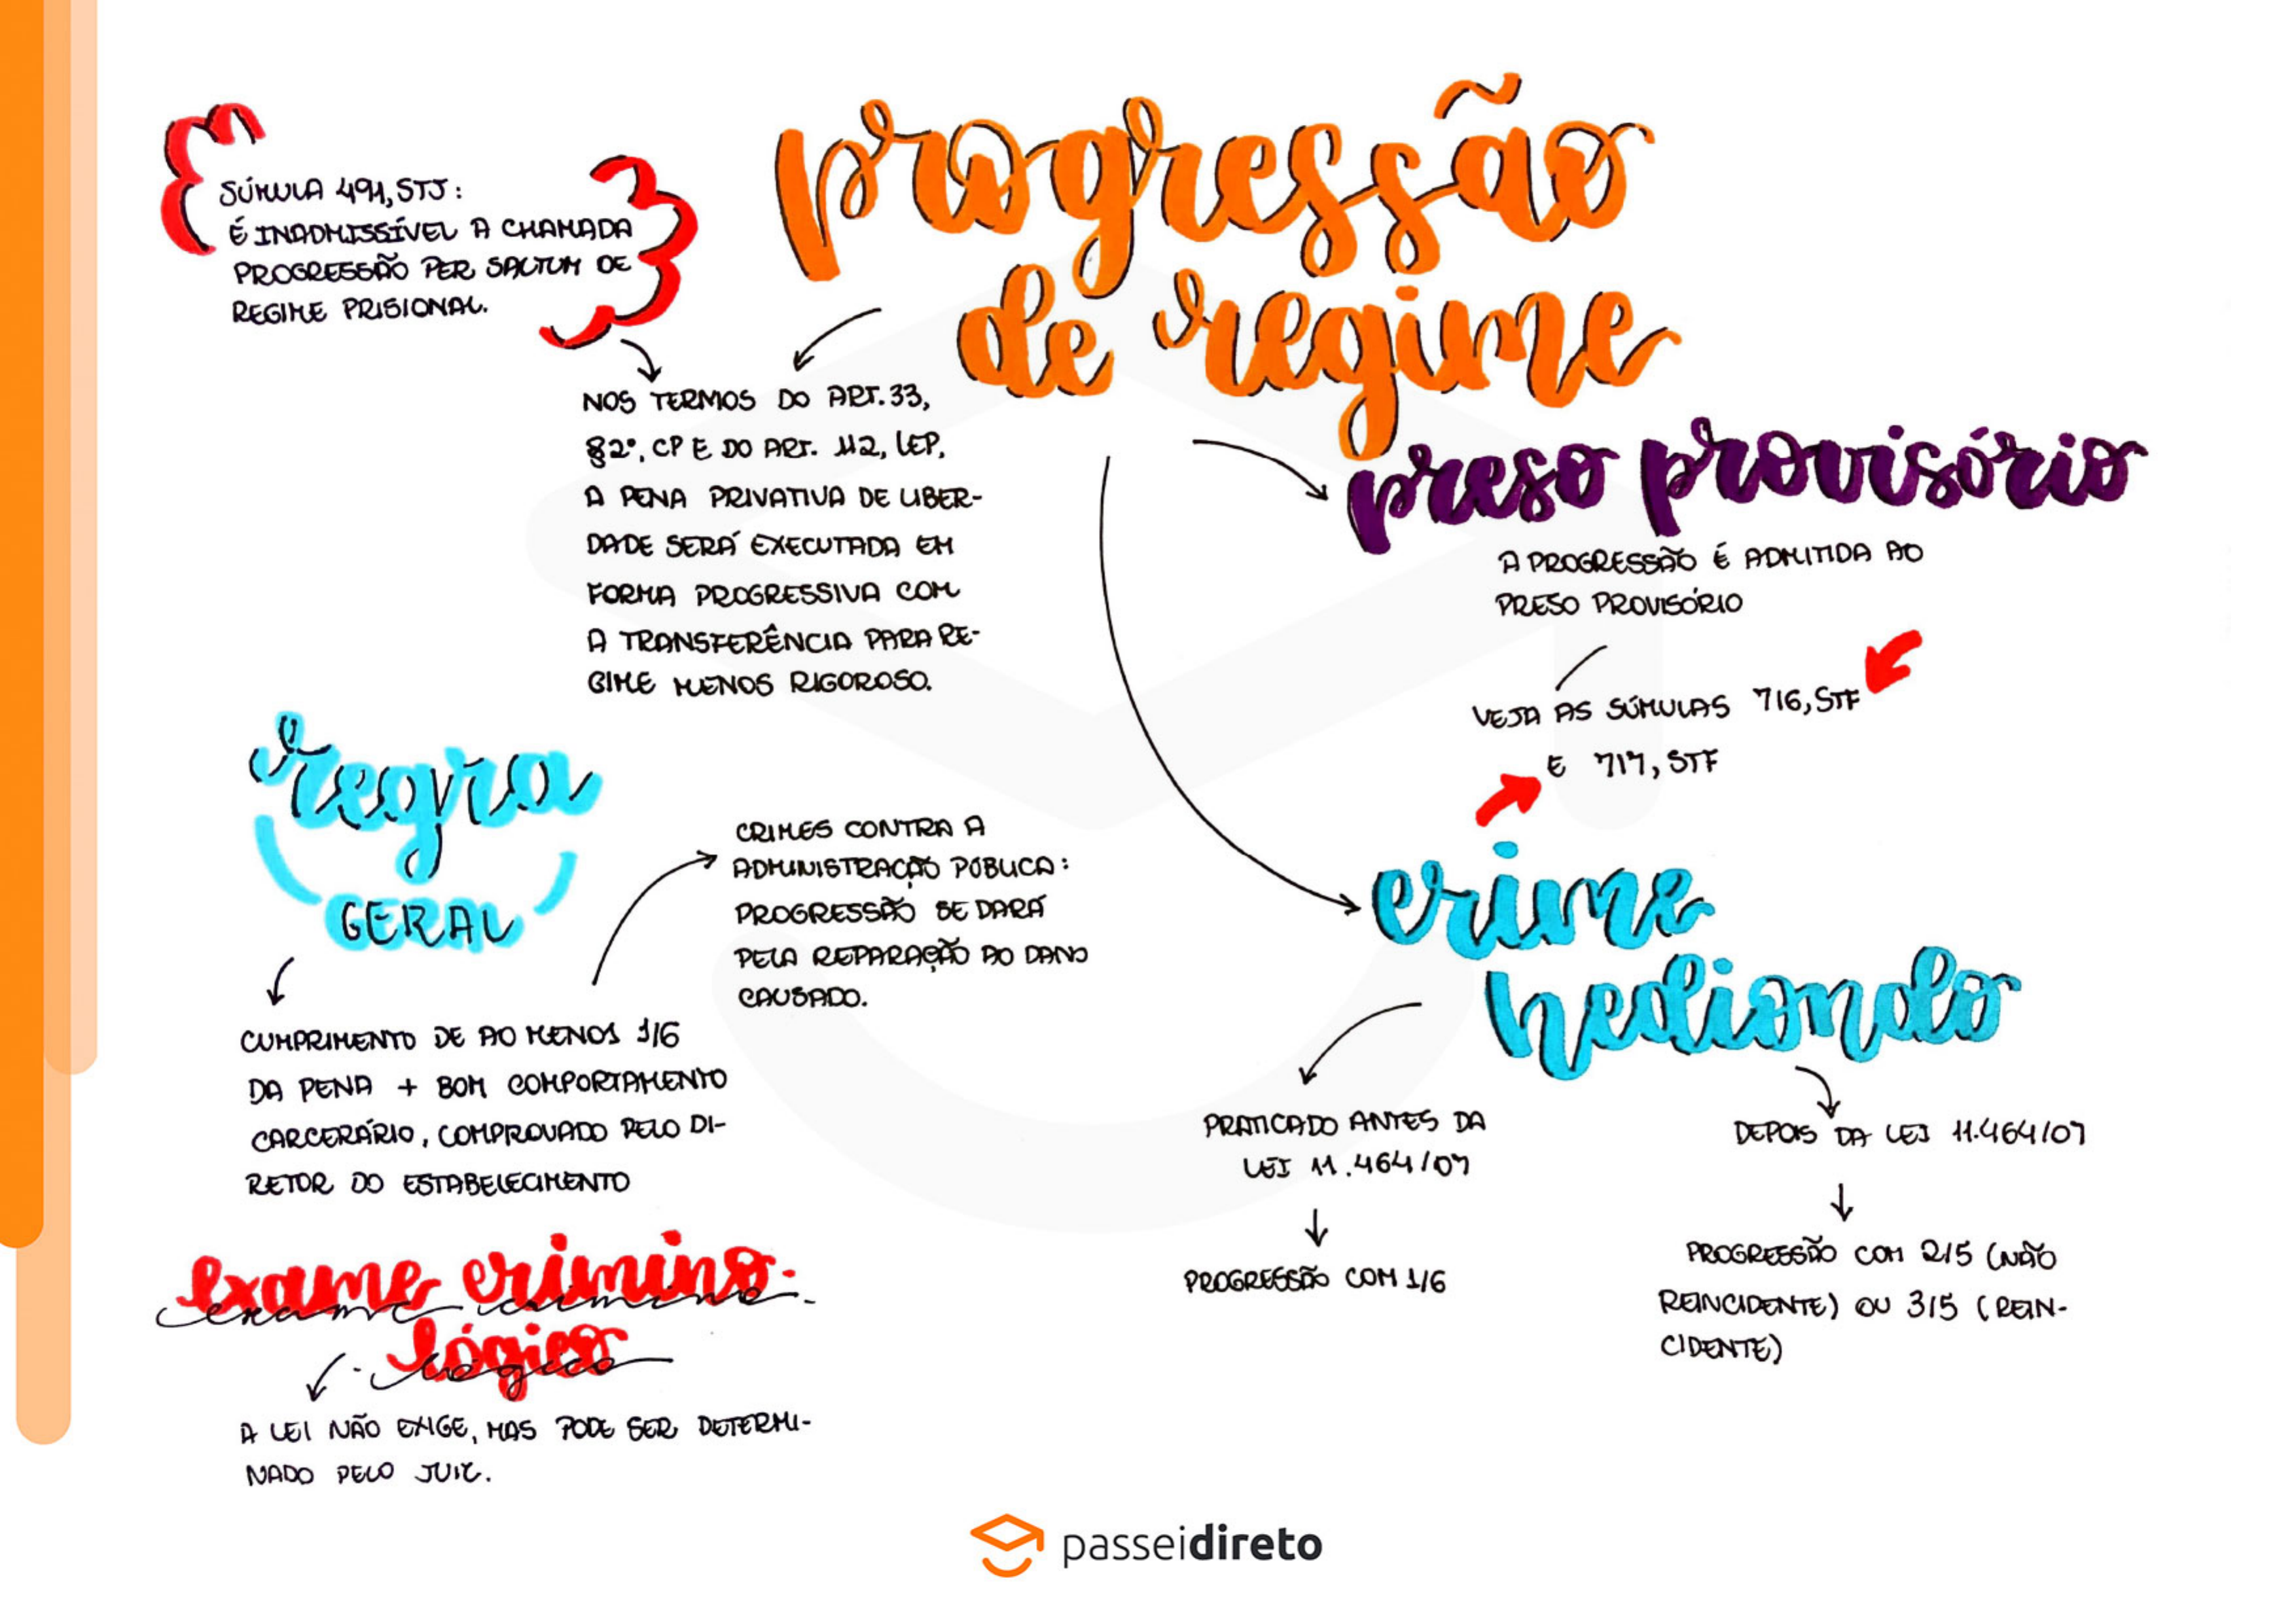 progressão
de regime
SÚMULA 491, STJ:
É INADMISSÍVEL A CHAMADA
PROGRESSÃO PER SALTUM DE
REGIME PRISIONAL.
NOS TERMOS DO ART. 33,
§2º, CP E DO ART. 112, LEP,
A PENA PRIVATIVA DE LIBER-
DADE SERÁ EXECUTADA EM
FORMA PROGRESSIVA COM
A TRANSFERÊNCIA PARA RE-
GIME MENOS RIGOROSO.
preso provisório
A PROGRESSÃO É ADMITIDA AO
PRESO PROVISÓRIO
VEJA AS SÚMULAS 716, STF
E 717, STF
regra
GERAL
CRIMES CONTRA A
ADMINISTRAÇÃO PÚBLICA:
PROGRESSÃO SE DARÁ
PELA REPARAÇÃO AO DANO
CAUSADO.
CUMPRIMENTO DE AO MENOS 1/6
DA PENA + BOM COMPORTAMENTO
CARCERÁRIO, COMPROVADO PELO DI-
RETOR DO ESTABELECIMENTO
crime
hediondo
PRATICADO ANTES DA
LEI 11.464/07
PROGRESSÃO COM 1/6
DEPOIS DA LEI 11.464/07
PROGRESSÃO COM 2/5 (NÃO
REINCIDENTE) OU 3/5 (REIN-
CIDENTE)
exame crimino-
lógico
A LEI NÃO EXIGE, MAS PODE SER DETERMI-
NADO PELO JUIZ.
passeidireto